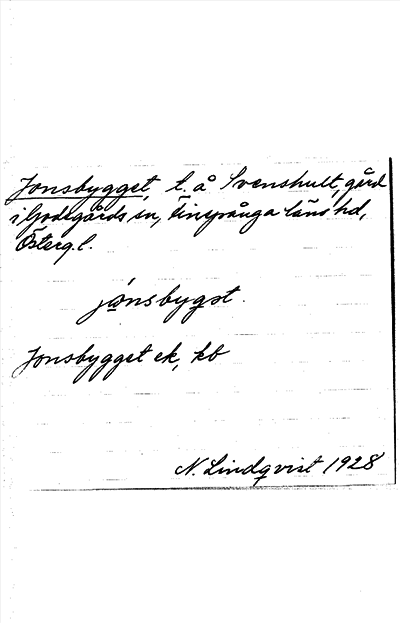 Jonsbygget, t. å Svenshult, gård
i Godegårds sn, Finspånga läns hd,
Österg. l.
jònsbygət.
Jonsbygget ek, kb
N. Lindqvist 1928